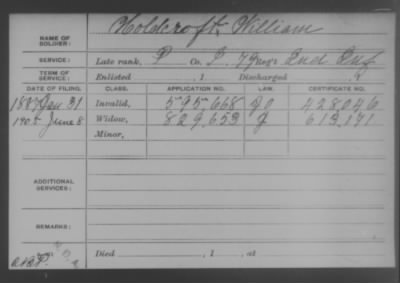 NAME OF SOLDIER: Holdcroft William
SERVICE: Late rank, P Co. I, 79 Reg't Ind Inf
TERM OF SERVICE: Enlisted , 1 Discharged , 1
DATE OF FILING. CLASS. APPLICATION NO. LAW. CERTIFICATE NO.
1887 Jan 31 Invalid, 595.668 428.046
1905 June 8 Widow, 829.653 613.171
Minor,
ADDITIONAL SERVICES:
REMARKS:
Died , 1 , at